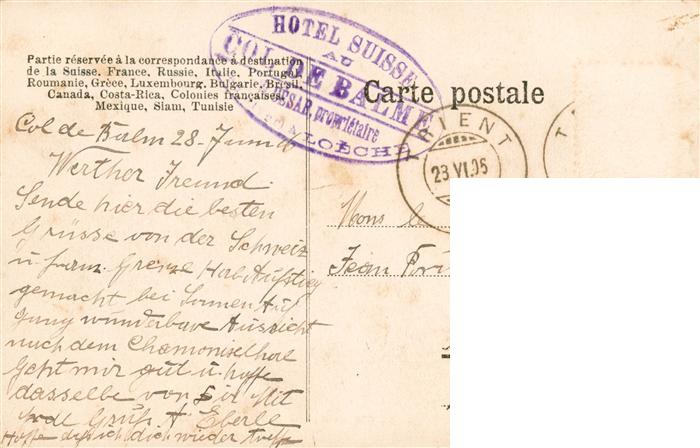 Partie réservée à la correspondance à destination
de la Suisse, France, Russie, Italie, Portugal,
Roumanie, Grèce, Luxembourg, Bulgarie, Brésil,
Canada, Costa-Rica, Colonies françaises,
Mexique, Siam, Tunisie
HÔTEL SUISSE
AU
COL DE BALME
propriétaire
LOÈCHE
Carte postale
TRIENT
23 VI.05
T
Col de Balm 28. Juni
Werther Freund
Sende hier die besten
Grüsse von der Schweiz
u. franz. Grenze Hab Aufstieg
gemacht bei Sonnen Auf
gang wunderbare Aussicht
nach dem
Geht mir gut u. hoffe
dasselbe von Mit
Gruß A. Eberle
Hoffe dich wieder
Mons le
Jean